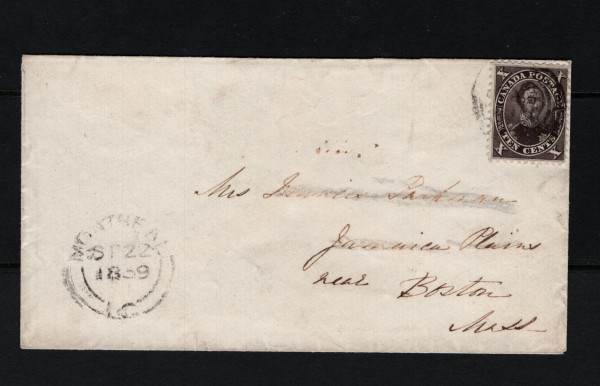 CANADA POSTAGE
TEN CENTS
Mrs Francis Parkman
Jamaica Plains
near Boston
Mass
MONTREAL
SP 22
1859
L.C